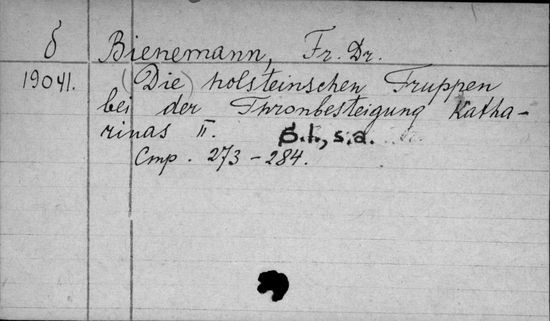 δ Bienemann, Fr. Dr.
19041. (Die) holsteinschen Truppen
bei der Thronbesteigung Katha-
rinas II. S.l., s.a.
Стр. 273-284.